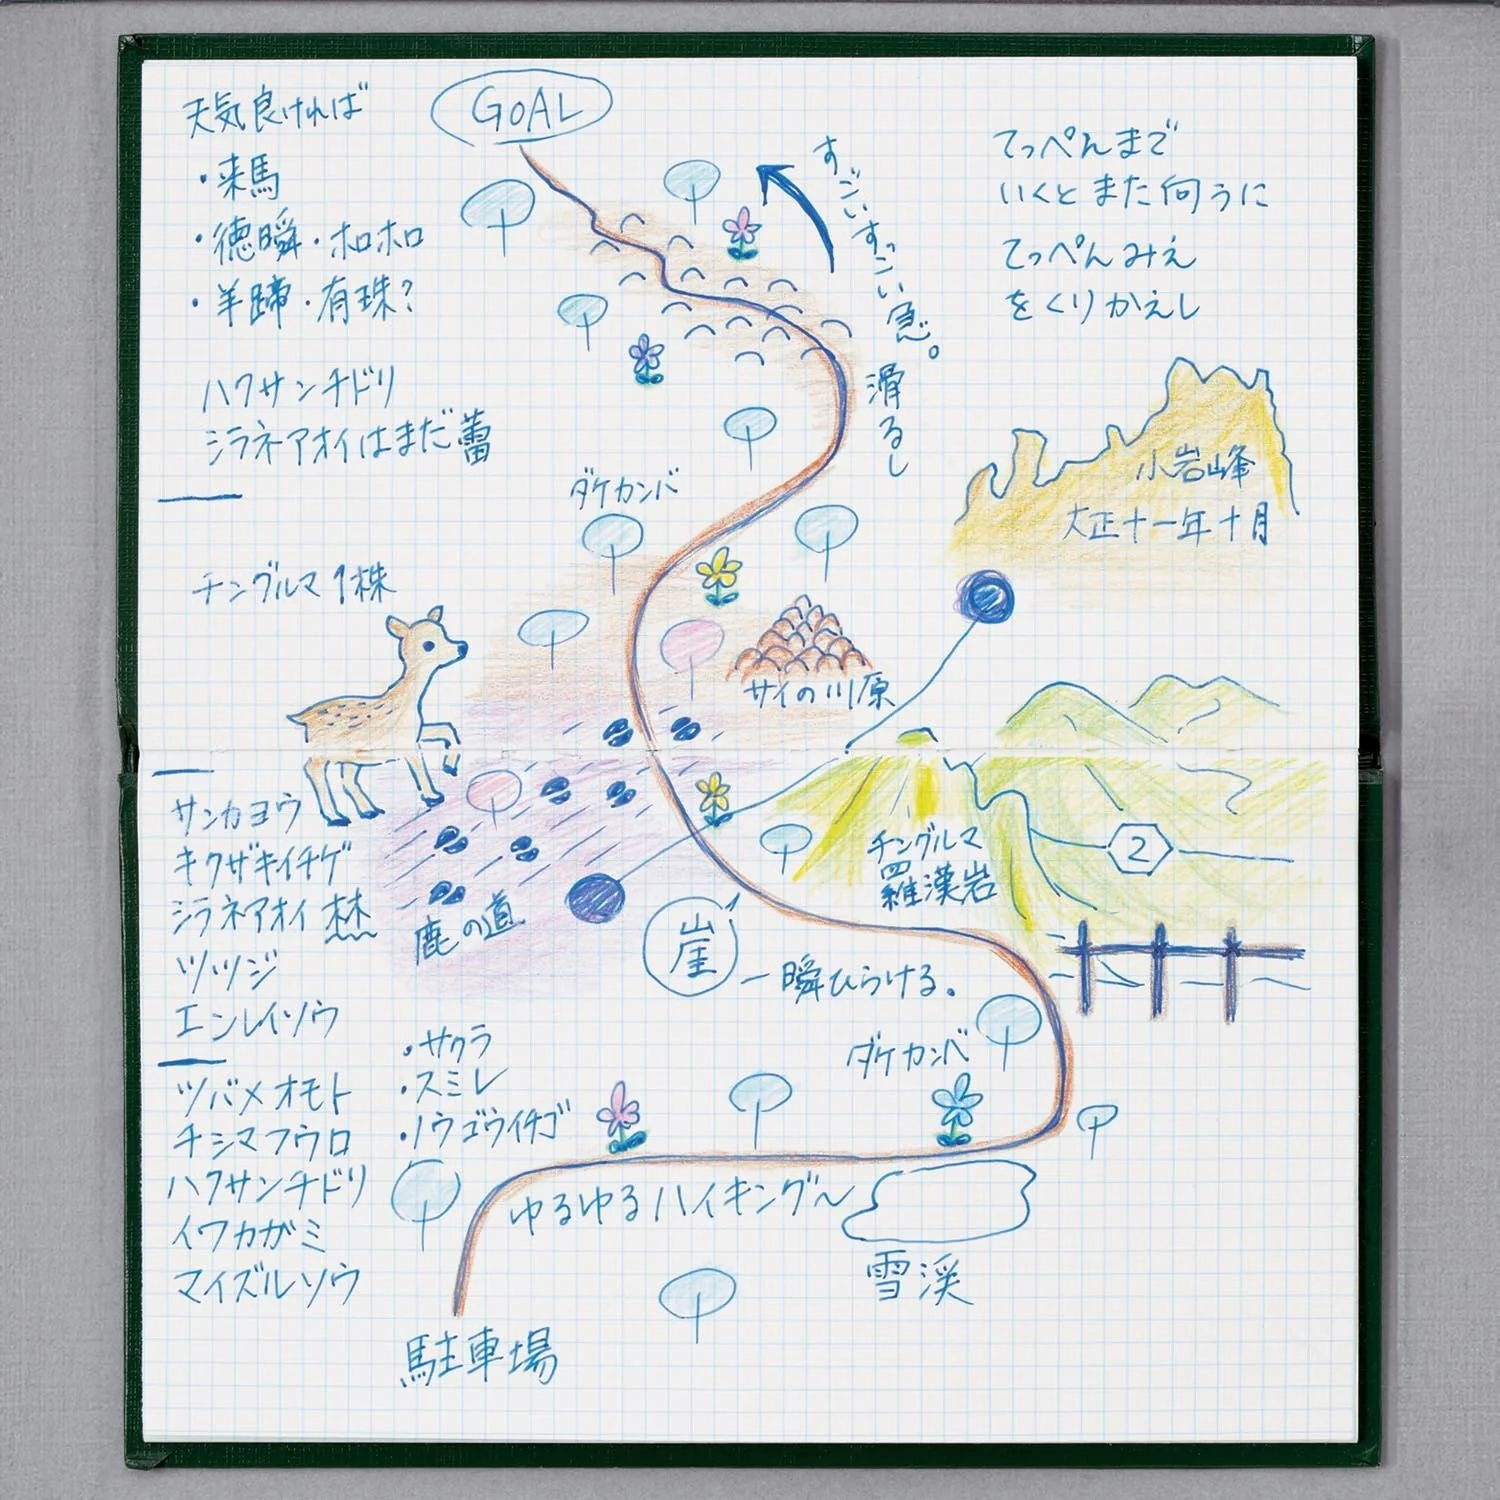 天気良ければ
・来馬
・徳瞬・ホロホロ
・羊蹄・有珠?
ハクサンチドリ
シラネアオイはまだ蕾
チングルマ1株
GOAL
すごいすごい急。
滑るし
てっぺんまで
いくとまた向うに
てっぺんみえ
をくりかえし
小岩峰
大正十一年十月
ダケカンバ
サイの川原
チングルマ
四
羅漢岩
2
鹿の道
崖
一瞬ひらける。
ダケカンバ
サンカヨウ
キクザキイチゲ
シラネアオイ
ツツジ
エンレイソウ
ツバメオモト
チシマフウロ
ハクサンチドリ
イワカガミ
マイズルソウ
・サクラ
・スミレ
・ノウゴウイチゴ
ゆるゆるハイキング〜
雪渓
駐車場